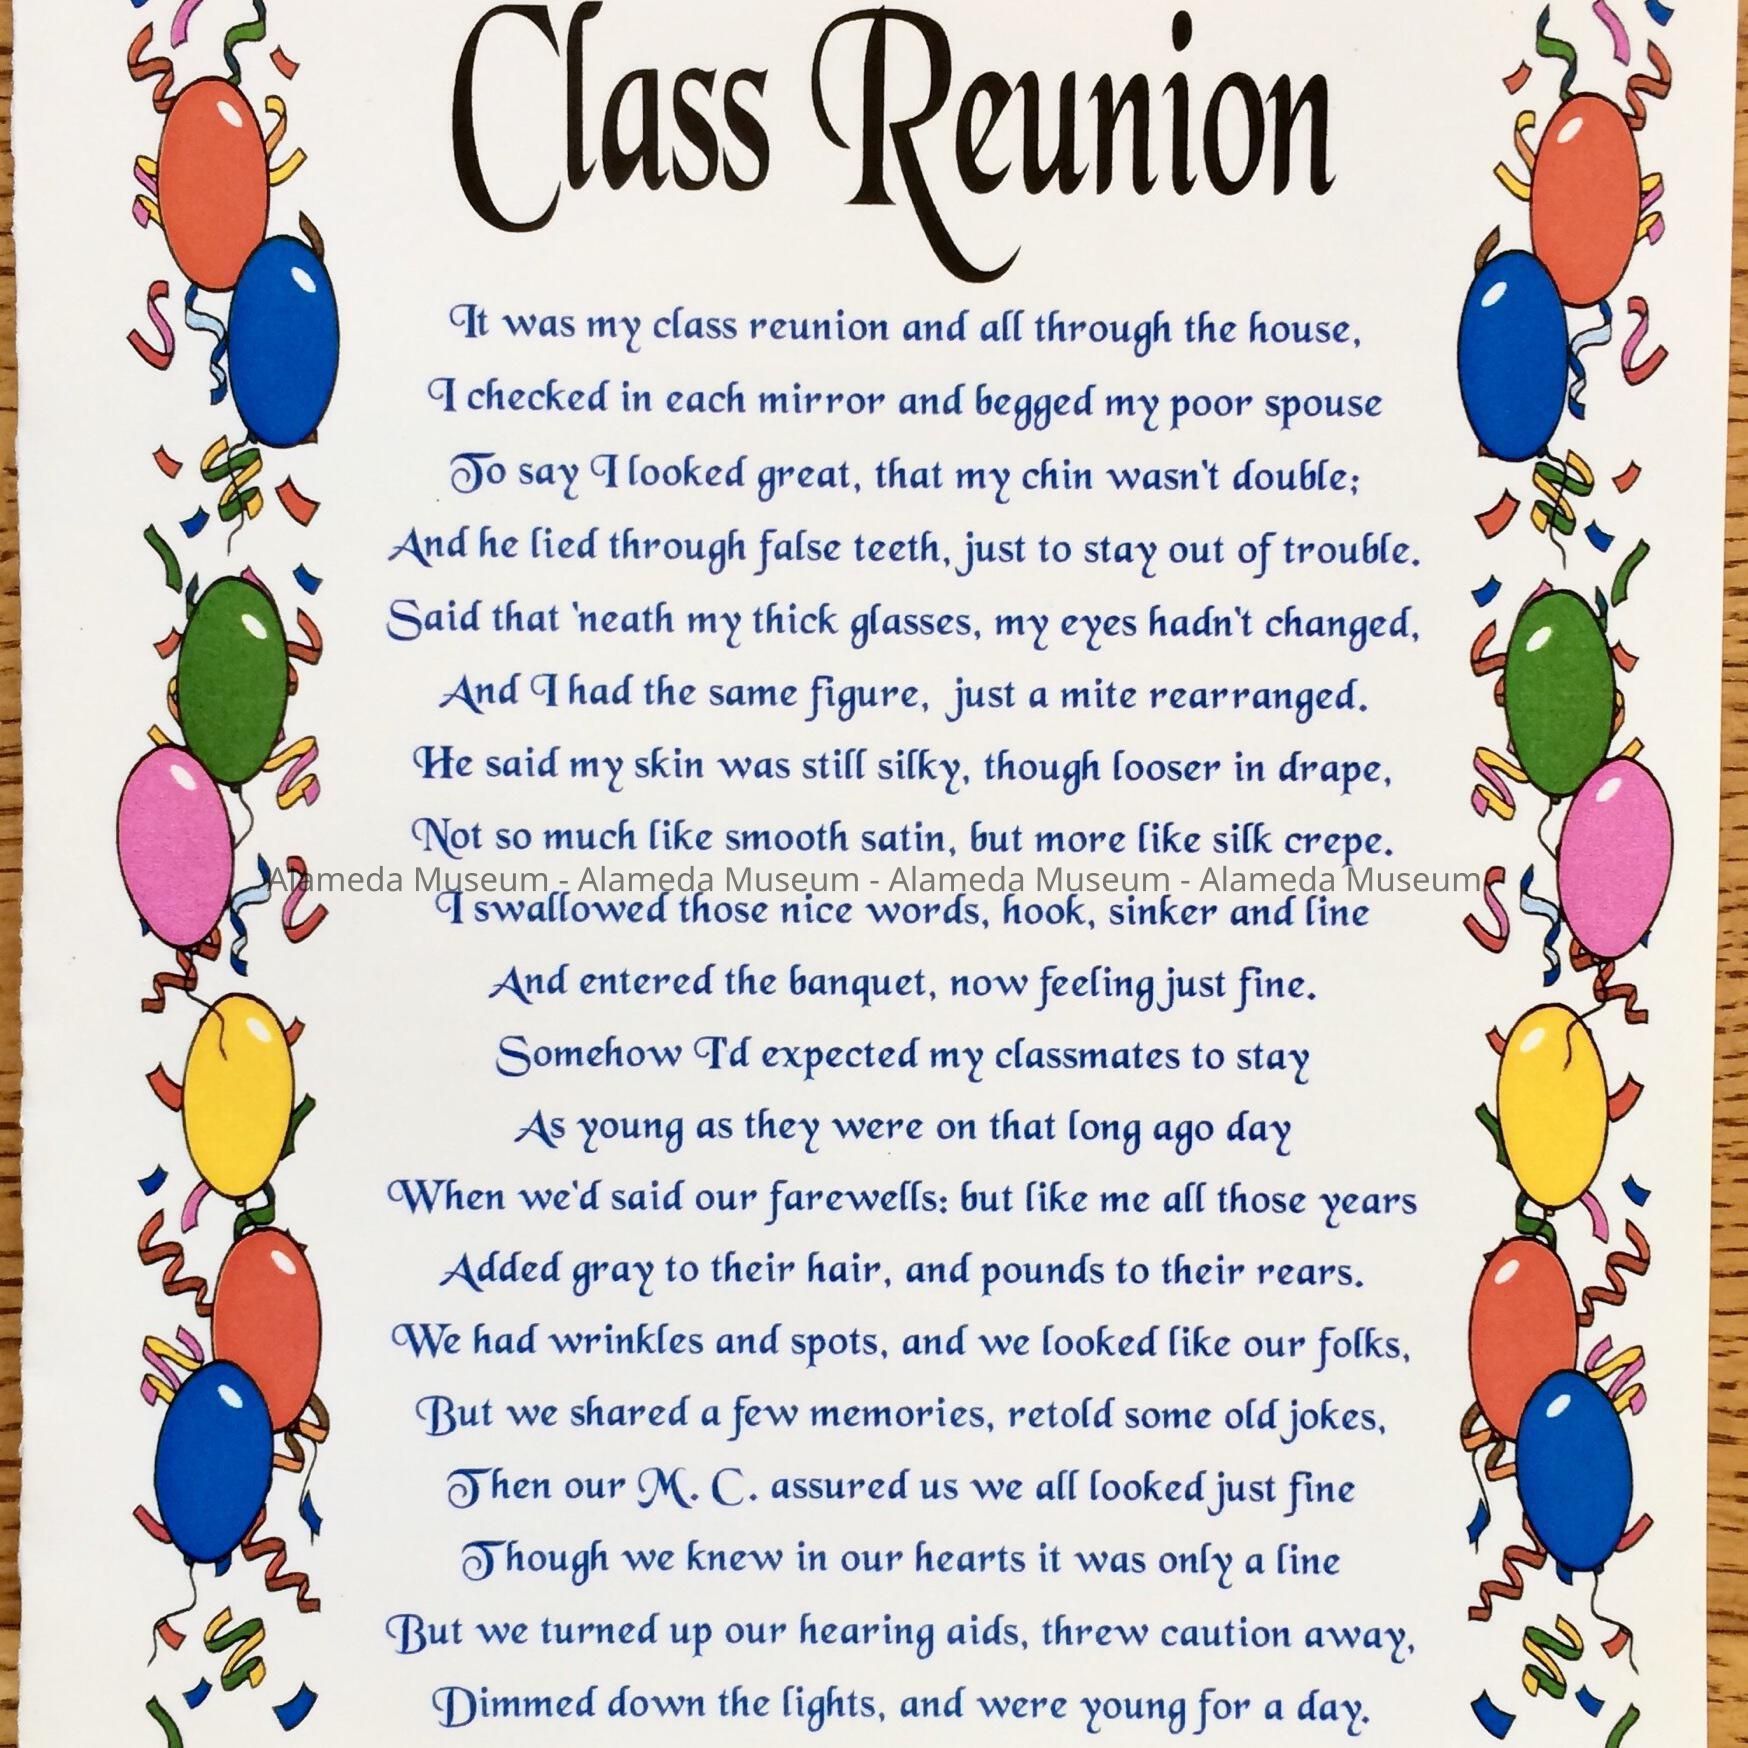 Class Reunion
It was my class reunion and all through the house,
I checked in each mirror and begged my poor spouse
To say I looked great, that my chin wasn't double;
And he lied through false teeth, just to stay out of trouble.
Said that 'neath my thick glasses, my eyes hadn't changed,
And I had the same figure, just a mite rearranged.
He said my skin was still silky, though looser in drape,
Not so much like smooth satin, but more like silk crepe.
Alameda Museum - Alameda Museum - Alameda Museum - Alameda Museum
I swallowed those nice words, hook, sinker and line
And entered the banquet, now feeling just fine.
Somehow I'd expected my classmates to stay
As young as they were on that long ago day
When we'd said our farewells: but like me all those years
Added gray to their hair, and pounds to their rears.
We had wrinkles and spots, and we looked like our folks,
But we shared a few memories, retold some old jokes,
Then our M. C. assured us we all looked just fine
Though we knew in our hearts it was only a line
But we turned up our hearing aids, threw caution away,
Dimmed down the lights, and were young for a day.